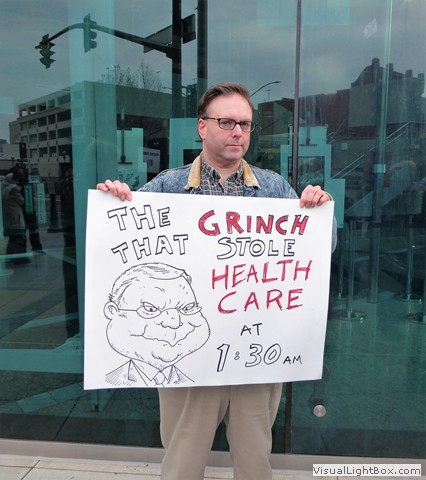 THE GRINCH
THAT STOLE
HEALTH
CARE
AT
1:30 AM
VisualLightBox.com